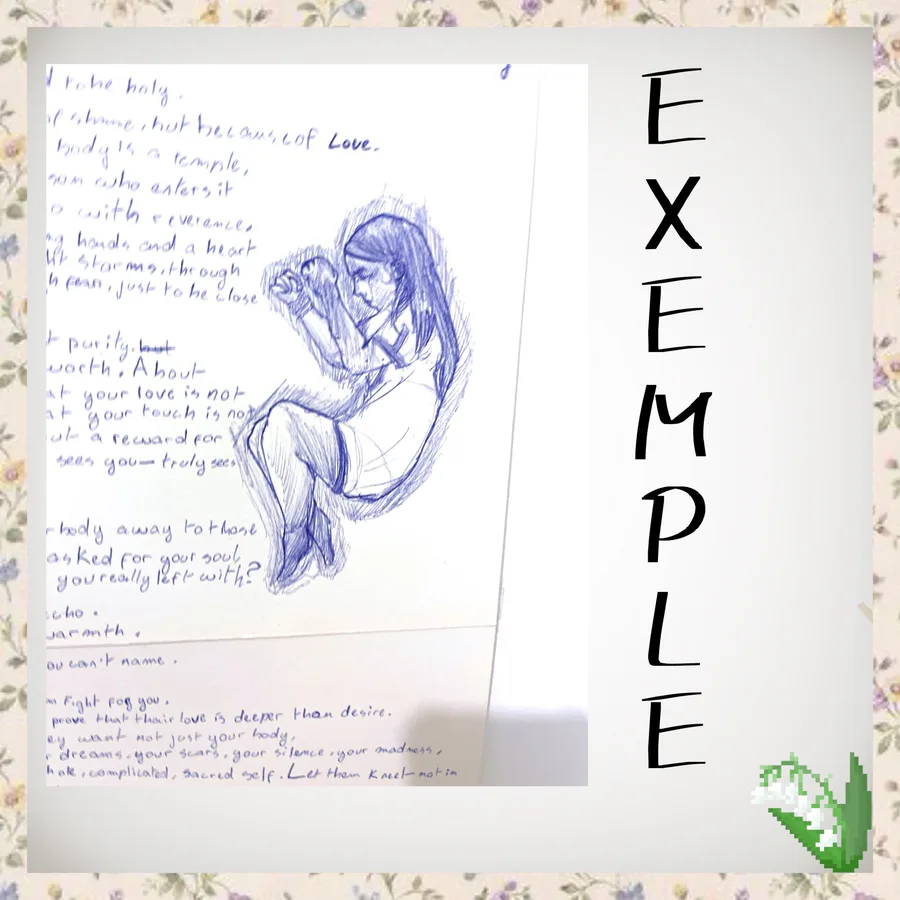 to be holy.
shame, but because of Love.
body is a temple,
who enters it
with reverence,
hands and a heart
storms, through
fear, just to be close
purity. but
worth. About
at your love is not
at your touch is not
a reward for
sees you— truly sees
body away to those
asked for your soul
you really left with?
echo.
warmth.
you can't name.
Fight for you.
prove that thair love is deeper than desire.
ey want not just your body,
dreams, your scars, your silence, your madness,
complicated, sacred self. Let them Kneel—not in
EXEMPLE